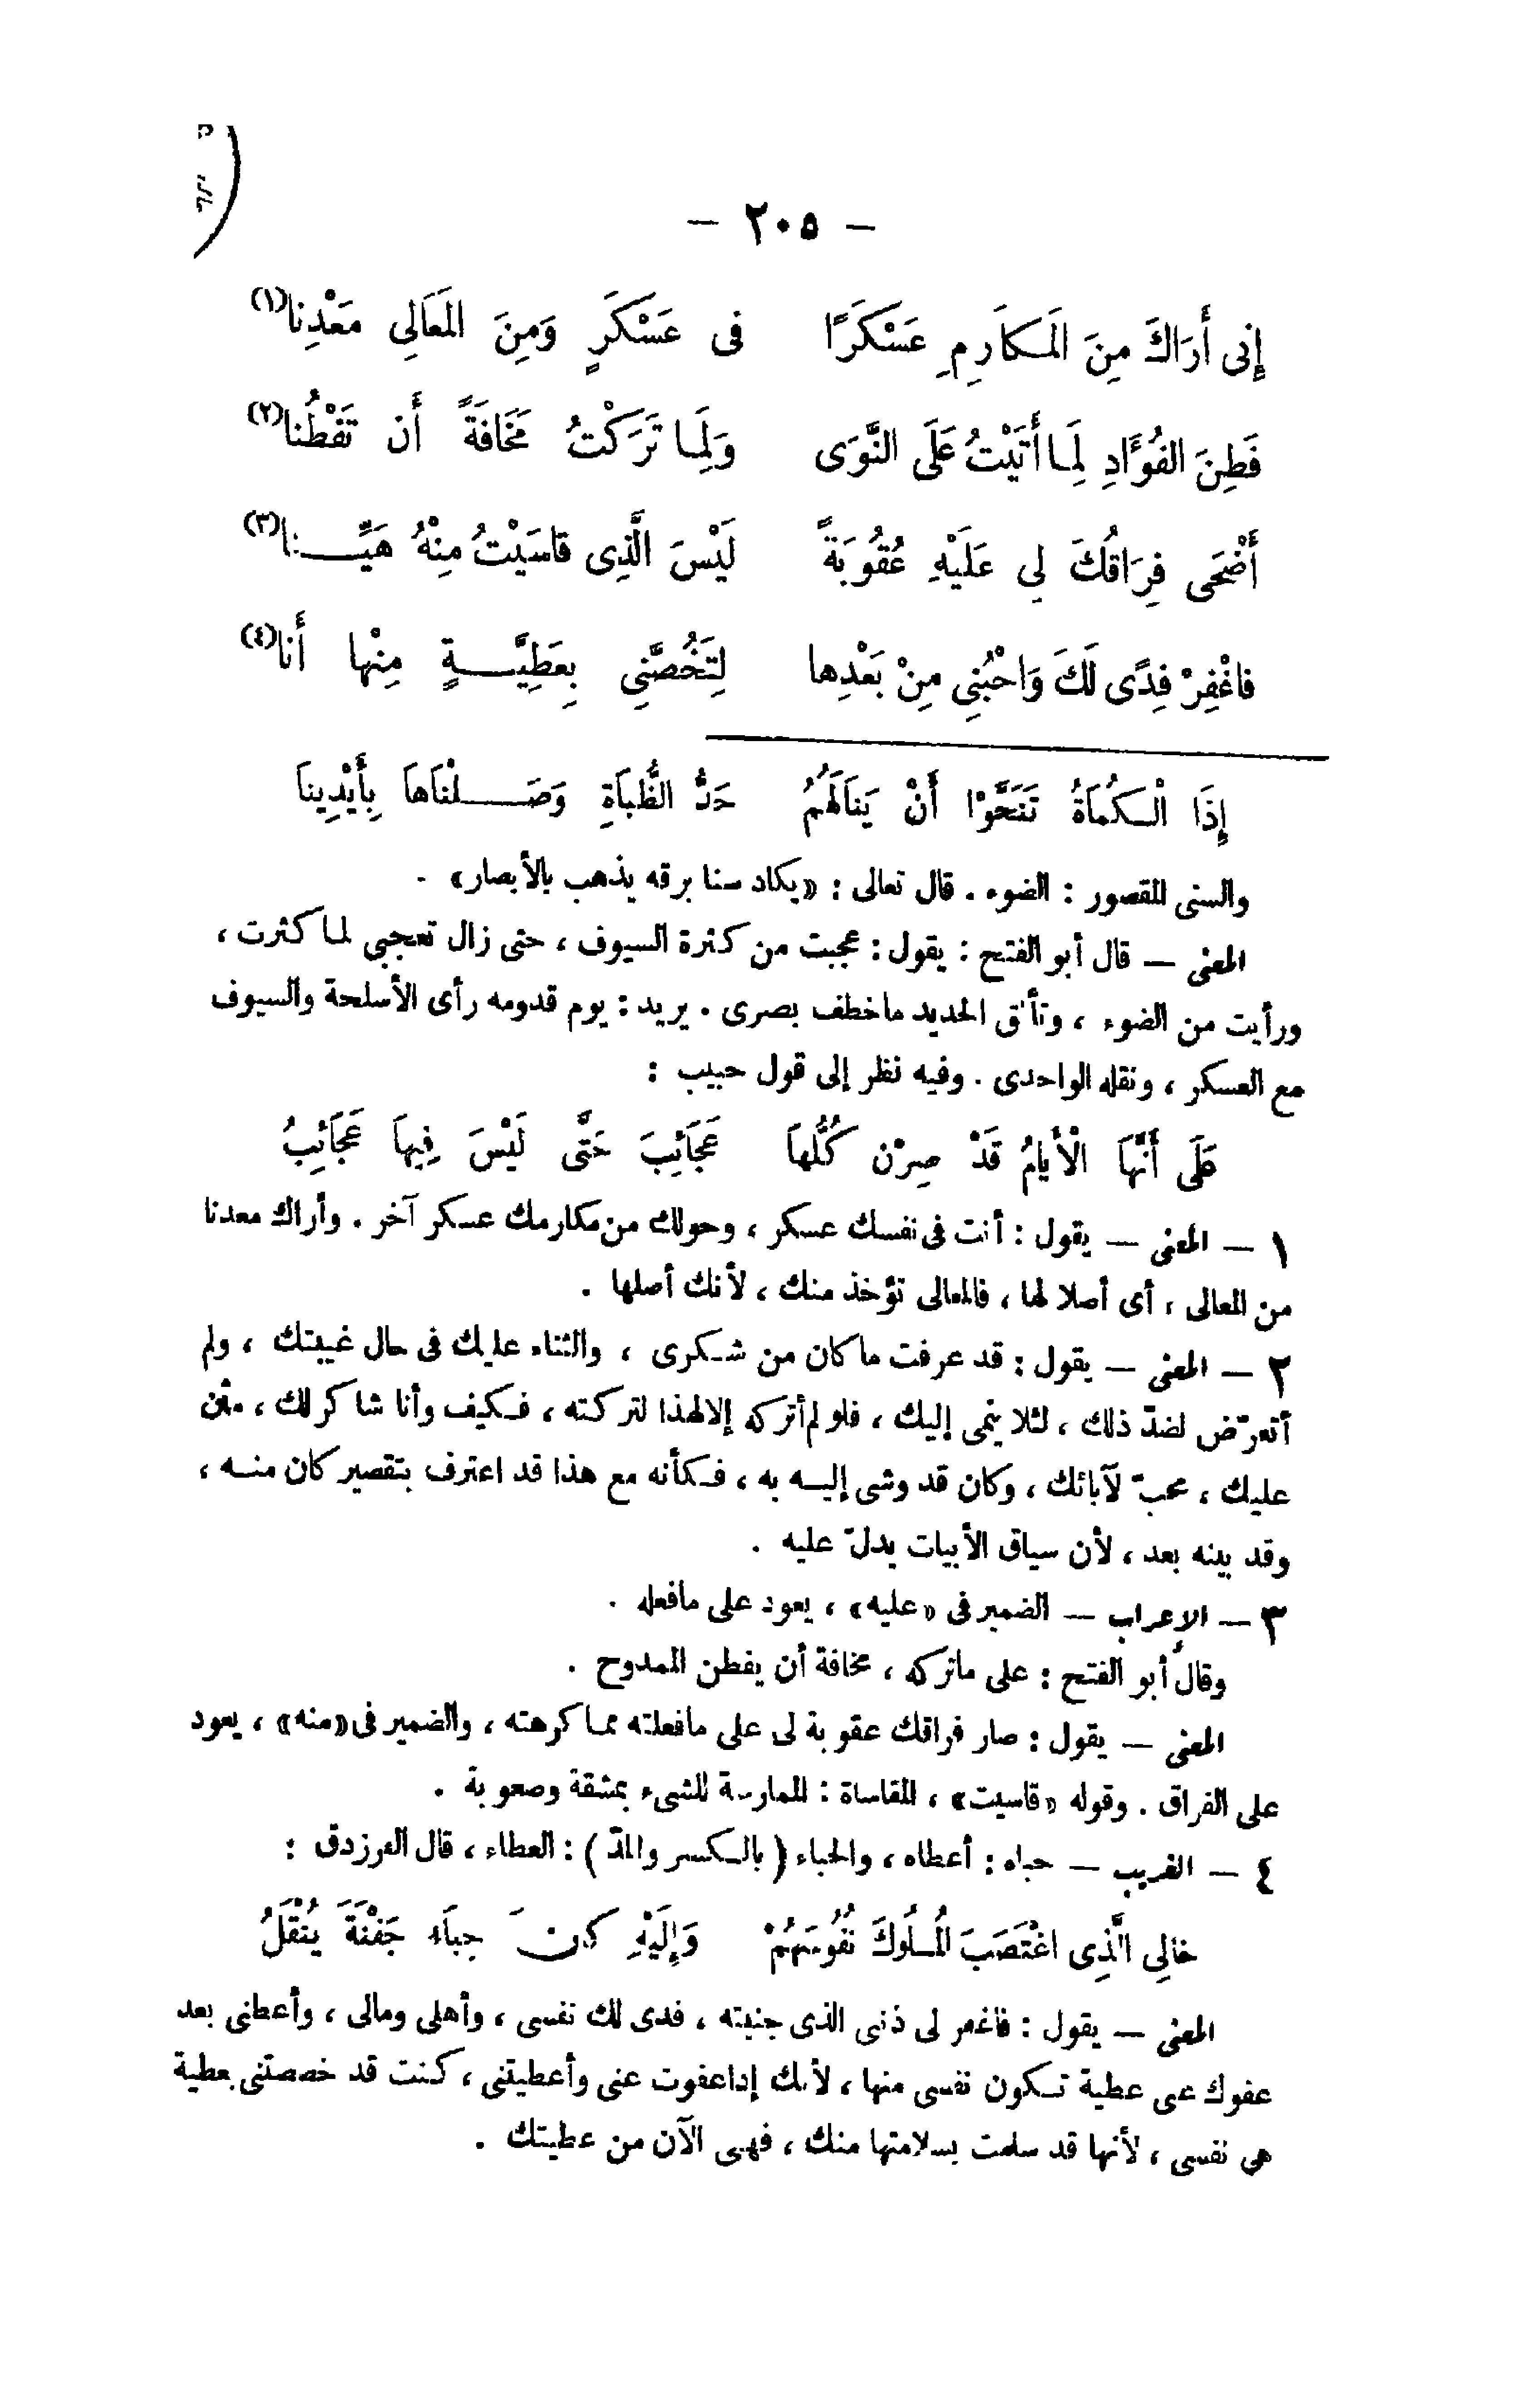 — ٢٠٥ —
إنى أَرَاكَ مِنَ المَكَارِمِ عَسْكَرًا فى عَسْكَرٍ وَمِنَ المَعَالِى مَعْدِنا(١)
فَطِنَ الفُؤَادِ لِمَا أَتَيْتُ عَلَى النَّوَى وَلِمَا تَرَكْتُ مَخَافَةً أَن تَفْطُنا(٢)
أَضْحَى فِرَاقُكَ لِى عَلَيْهِ عُقُوبَةً لَيْسَ الَّذِى قاسَيْتُ مِنْهُ هَيِّنا(٣)
فاغْفِرْ فِدًى لَكَ وَاحْبُنِى مِنْ بَعْدِها لِتَخُصَّنِى بِعَطِيَّةٍ مِنْها أَنا(٤)
إِذَا الْكُمَاةُ تَنَحَّوْا أَنْ يَنَالَهُمُ حَدُّ الظُّبَاةِ وَصَلْنَاهَا بِأَيْدِينا
والسنى المقصور : الضوء . قال تعالى : «يكاد سنا برقه يذهب بالأبصار» .
المعنى — قال أبو الفتح : يقول : عجبت من كثرة السيوف ، حتى زال تعجبى لما كثرت ،
ورأيت من الضوء ، وتألق الحديد ماخطف بصرى . يريد : يوم قدومه رأى الأسلحة والسيوف
مع العسكر ، ونقله الواحدى . وفيه نظر إلى قول حبيب :
عَلَى أَنَّهَا الْأَيامُ قَدْ صِرْن كُلُّهَا عَجَائِبَ حَتَّى لَيْسَ فِيهَا عَجَائِبُ
١ — المعنى — يقول : أنت فى نفسك عسكر ، وحولك من مكارمك عسكر آخر . وأراك معدنا
من المعالى ، أى أصلا لها ، فالمعالى تؤخذ منك ، لأنك أصلها .
٢ — المعنى — يقول : قد عرفت ماكان من شكرى ، والثناء عليك فى حال غيبتك ، ولم
أتعرّض لضدّ ذلك ، لئلا ينمى إليك ، فلو لم أتركه إلا لهذا لتركته ، فكيف وأنا شاكر لك ، مثن
عليك ، محبّ لآبائك ، وكان قد وشى إليه به ، فكأنه مع هذا قد اعترف بتقصير كان منه ،
وقد بينه بعد ، لأن سياق الأبيات يدلّ عليه .
٣ — الإعراب — الضمير فى «عليه» ، يعود على مافعله .
وقال أبو الفتح : على ماتركه ، مخافة أن يفطن الممدوح .
المعنى — يقول : صار فراقك عقوبة لى على مافعلته مما كرهته ، والضمير فى «منه» ، يعود
على الفراق . وقوله «قاسيت» ، المقاساة : الممارسة للشىء بمشقة وصعوبة .
٤ — الغريب — حباه : أعطاه ، والحباء ( بالكسر والمدّ ) : العطاء ، قال الفرزدق :
خالِى الَّذِى اغْتَصَبَ المُلُوكَ نُفُوسَهُمْ وَإِلَيْهِ كانَ حِباءُ جَفْنَةَ يُنْقَلُ
المعنى — يقول : فاغفر لى ذنبى الذى جنيته ، فدى لك نفسى ، وأهلى ومالى ، وأعطنى بعد
عفوك عنى عطية تكون نفسى منها ، لأنك إذا عفوت عنى وأعطيتنى ، كنت قد خصصتنى بعطية
هى نفسى ، لأنها قد سلمت بسلامتها منك ، فهى الآن من عطيتك .